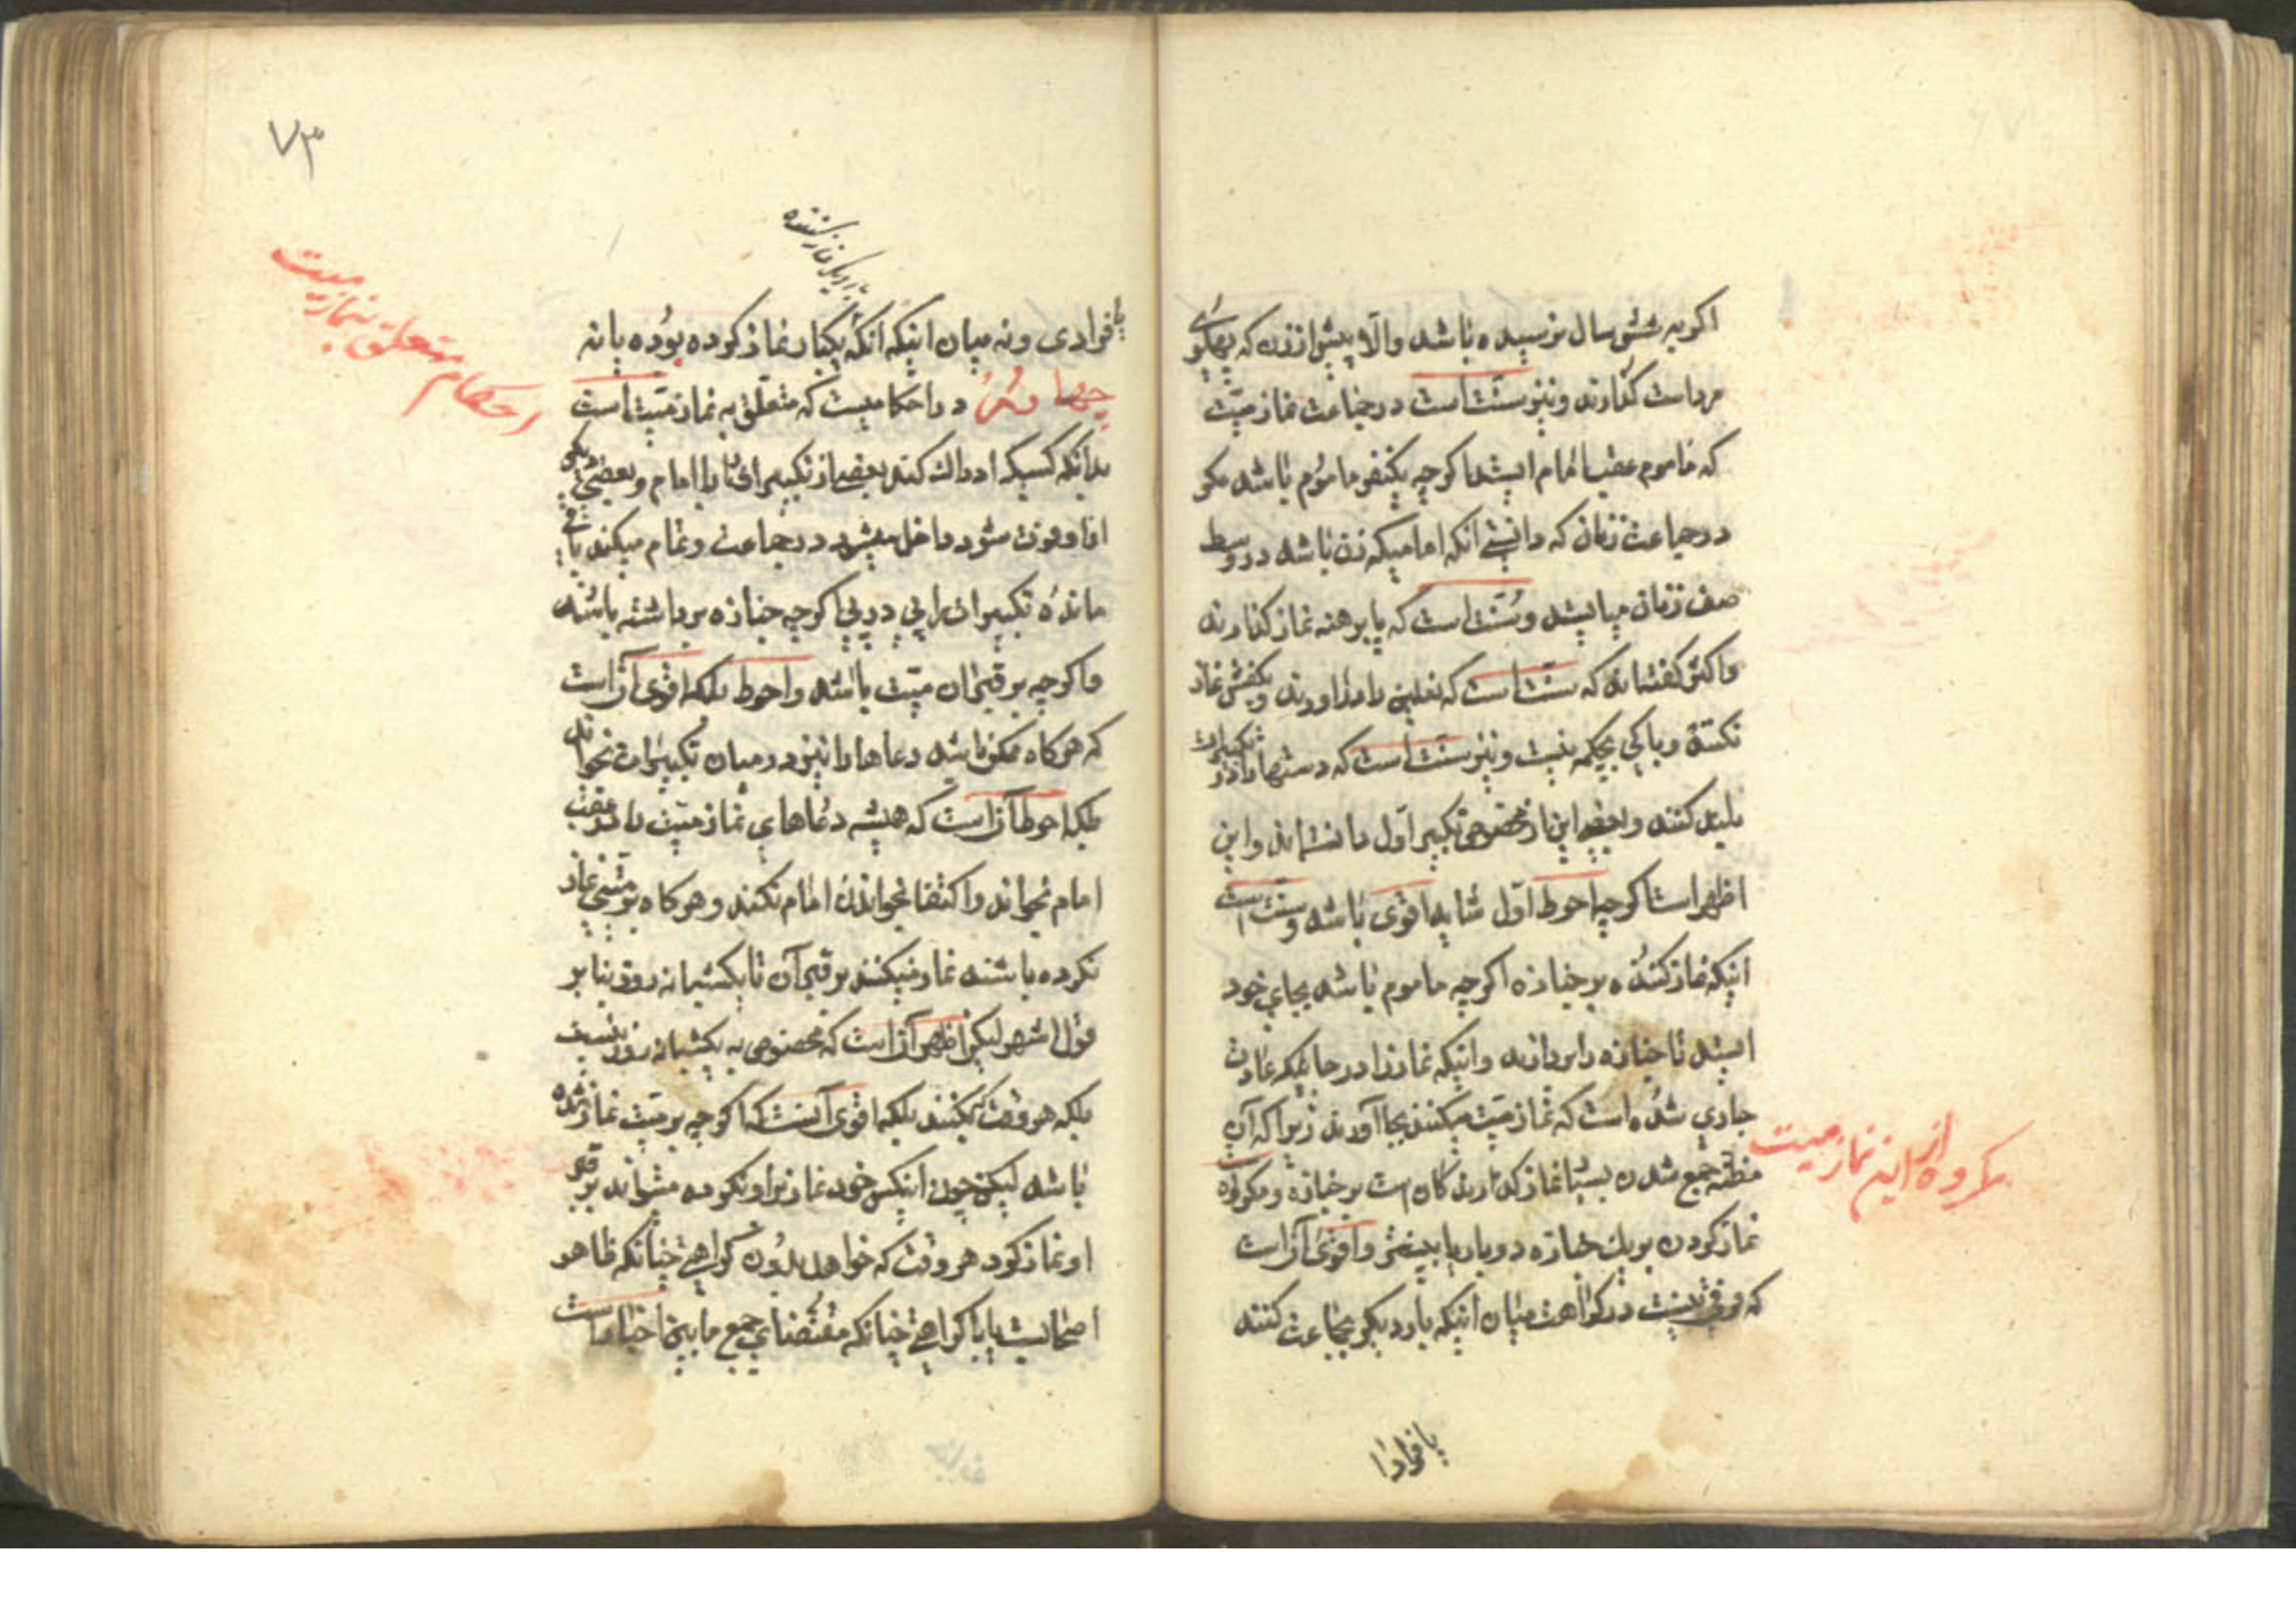 اگر به شش سال نرسیده باشد والّا پیش از زن که پهلوی
مرد است گذارند و نیز سنّت است در جماعت نماز میّت
که ماموم عقب امام ایستد اگرچه یکنفر ماموم باشد مگر
در جماعت زنان که دانستی آنکه امامیکه زن باشد در وسط
صف زنان میایستد و سُنّت است که پا برهنه نماز گذارند
و اکثر گفته‌اند که سنّت است که نعلین را درآورند و بکفش نماز
نکنند و باکی بچکمه نیست و نیز سنّت است که دستها را در تکبیرات
بلند کنند و بعضی این را مخصوص تکبیر اوّل دانسته‌اند و این
اظهر است اگرچه احوط اوّل شاید اقوی باشد و سنّت است
اینکه نماز کننده بر جنازه اگرچه ماموم باشد بجای خود
ایستد تا جنازه را بردارند و اینکه نماز را در جائیکه عادت
جاری شده است که نماز میّت میکنند بجا آورند زیرا که آن
مظنّه جمع شدن بسیار نماز گذارندگان است بر جنازه و مکروه است
نماز کردن بر یک جنازه دو بار یا بیشتر و اقوی آنست
که فرقی نیست در کراهت میان اینکه بار دیگر بجماعت کنند
مکروه از این نماز میت
یا فرادا
۷۳
یا فرادی و نه میان اینکه آنکه یکبار نماز کرده بوده یا نه
چهارم در احکامیست که متعلّق به نماز میّت است
بدانکه کسیکه ادراک کند بعضی از تکبیرات را با امام و بعضی دیگر
از او فوت شود داخل میشود در جماعت و تمام میکند باقی
مانده تکبیرات را پی در پی اگرچه جنازه برداشته باشند
و اگرچه بر قبر آن میّت باشد و احوط بلکه اقوی آنست
که هرگاه ممکن باشد دعاها را نیز در میان تکبیرات بخواند
بلکه احوط آنست که همیشه دعاهای نماز میّت را در عقب
امام بخواند و اکتفا بخواندن امام نکند و هرگاه بر میّتی نماز
نکرده باشند نماز میکنند بر قبر آن تا یکشبانه روز بنا بر
قول اشهر لیکن اظهر آنست که مخصوص به یکشبانه روز نیست
بلکه هر وقت میکنند بلکه اقوی آنست که اگرچه بر میّت نماز شده
باشد لیکن چون اینکس خود نماز بر او نکرده میتواند بر قبر
او نماز کرد هر وقت که خواهد بدون کراهتی چنانکه ظاهر
اصحابست یا با کراهتی چنانکه مقتضای جمع ما بین اخبار است
احکام متعلق بنماز میت